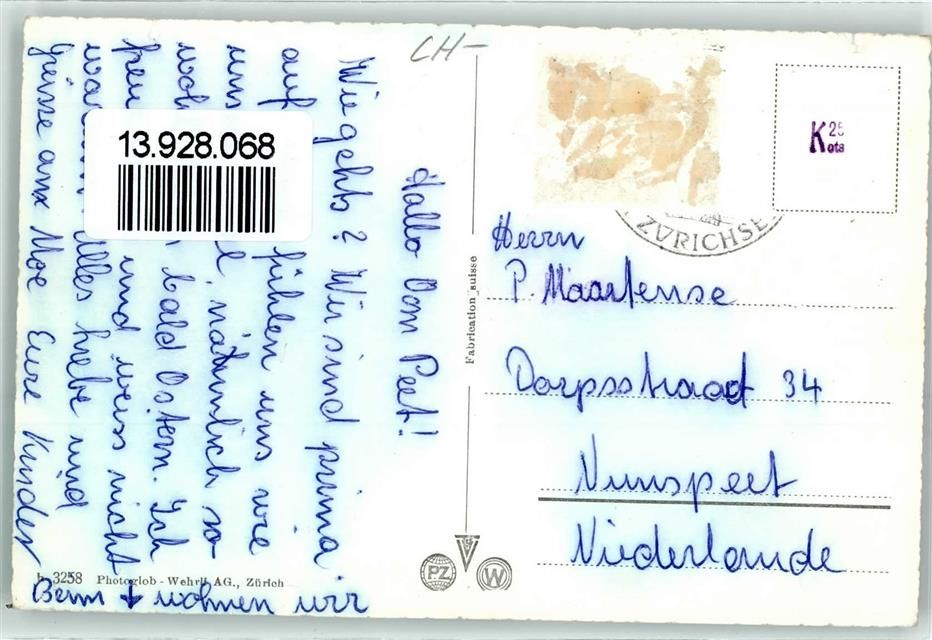 CH-
13.928.068
K 25
Cts
ZÜRICHSE
Hallo Oom Peet!
Wie gehts? Wir sind prima
auf fühlen uns wie
uns
woh natürlich so
bald Ostern. Ich
und weiss nicht
Alles liebe und
Grüsse aux Moe Eure Kinder
Fabrication suisse
Herrn
P. Maartense
Dorpsstraat 34
Nunspeet
Niederlande
b 3258 Photoglob-Wehrli AG., Zürich
PZ
W
Bern ↓ wohnen wir